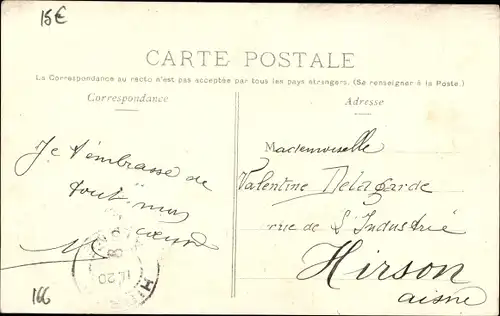 15€
CARTE POSTALE
La Correspondance au recto n'est pas acceptée par tous les pays étrangers. (Se renseigner à la Poste.)
Correspondance
Je t'embrasse de
tout mon
cœur
M
166
Adresse
Mademoiselle
Valentine Delagarde
rue de L'Industrie
Hirson
aisne